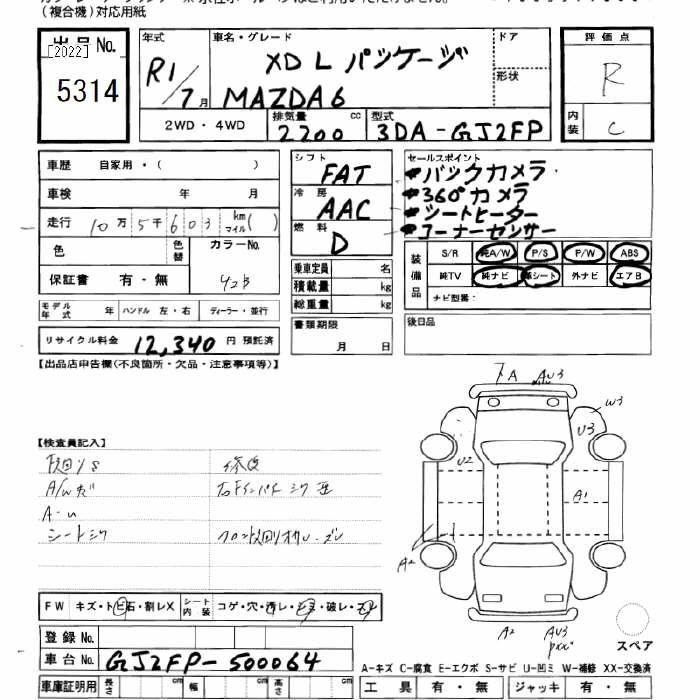 (複合機)対応用紙
出品No.
[2022]
5314
年式
R1/7月
車名・グレード
XD L パッケージ
MAZDA6
ドア
形状
評価点
R
内装
C
2WD・4WD
排気量
2200 cc
型式
3DA-GJ2FP
車歴 自家用・( )
車検 年 月
走行 10万5千603 km マイル( )
色 色替 カラーNo.
保証書 有・無 42B
モデル年式 年 ハンドル 左・右 ディーラー・並行
リサイクル料金 12,340 円 預託済
シフト
FAT
冷房
AAC
燃料
D
乗車定員 名
積載量 kg
総重量 kg
書類期限
月 日
セールスポイント
バックカメラ
360°カメラ
シートヒーター
コーナーセンサー
装備品
S/R 純A/W P/S P/W ABS
純TV 純ナビ 革シート 外ナビ エアB
ナビ型番:
後日品
【出品店申告欄(不良箇所・欠品・注意事項等)】
【検査員記入】
下廻りS 修復
A/Wキズ
A-U
シートシワ
A U3
W3
U3
U2
A1
A2
A2 AU3
FW キズ・トビ石・割レX シート内装 コゲ・穴・汚レ・シミ・破レ・スレ
登録No.
車台No. GJ2FP-500064
車庫証明用 長さ cm 幅 cm 高さ cm
スペア
A-キズ C-腐食 E-エクボ S-サビ U-凹ミ W-補修 XX-交換済
工具 有・無 ジャッキ 有・無